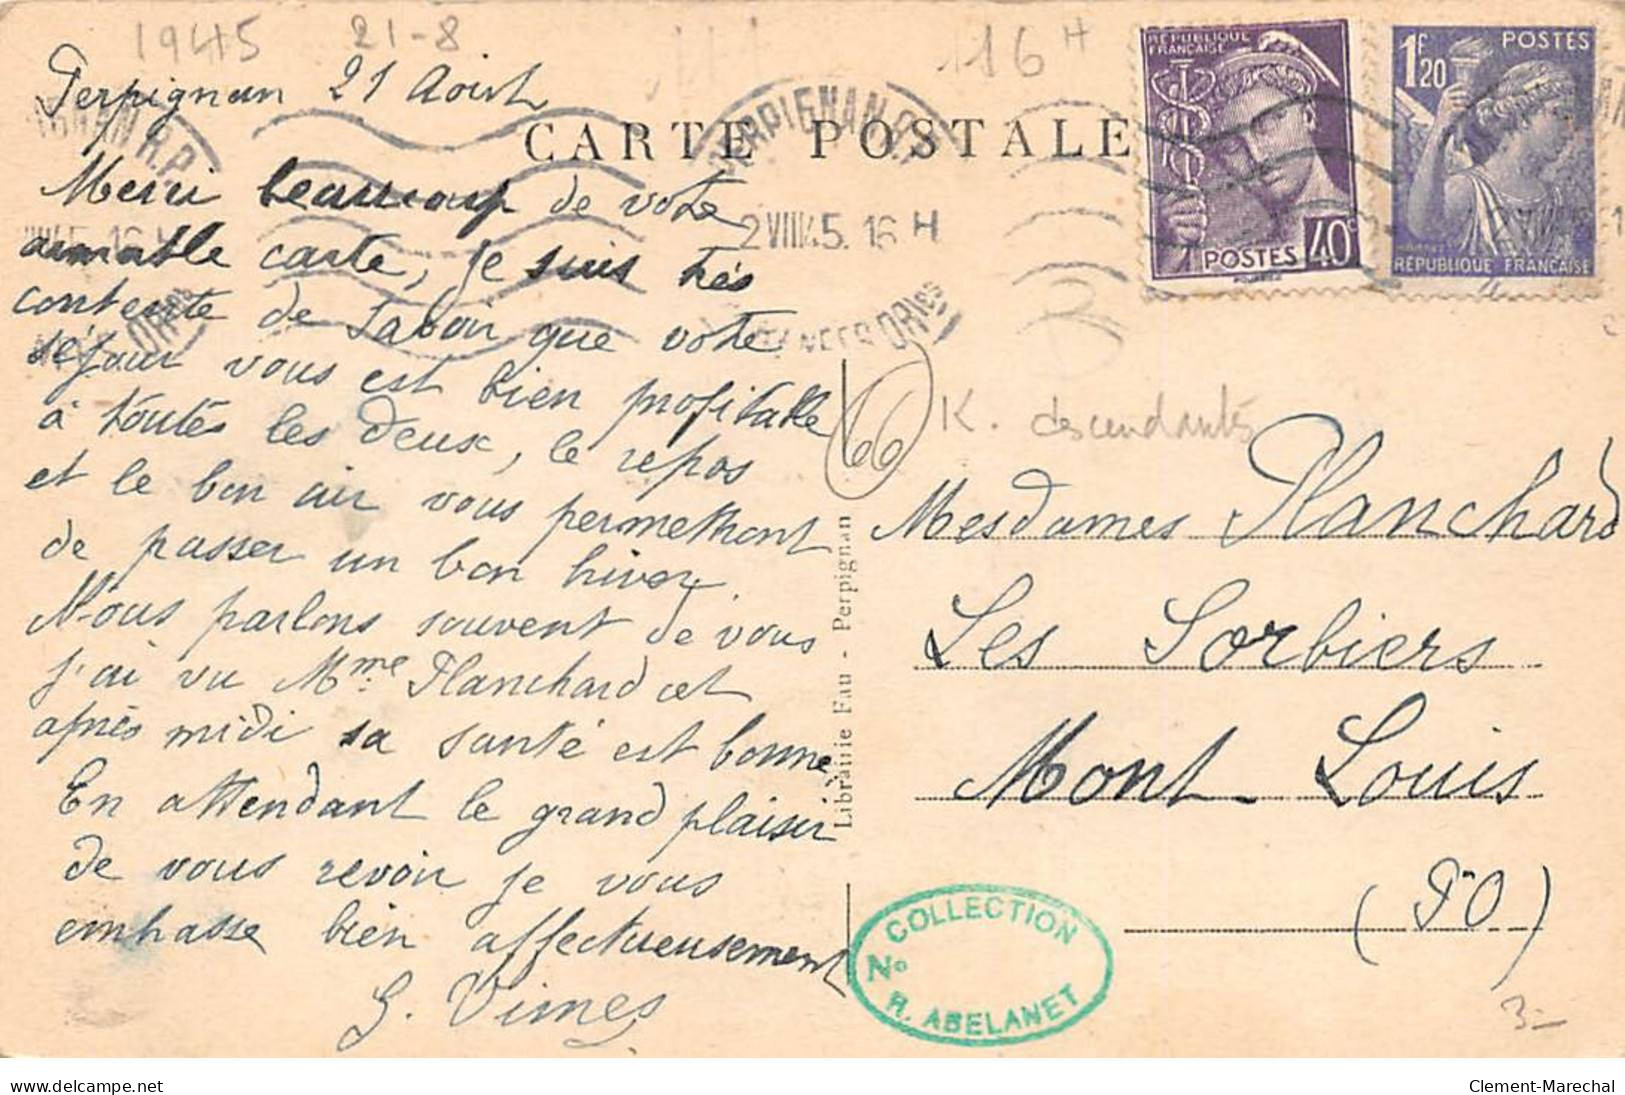 1945 21-8
116 H
Perpignan 21 Août
CARTE POSTALE
Merci beaucoup de votre
aimable carte, je suis très
contente de savoir que votre
séjour vous est bien profitable
à toutes les deux, le repos
et le bon air vous permettront
de passer un bon hiver.
Nous parlons souvent de vous
j'ai vu Mme Planchard cet
après midi sa santé est bonne
En attendant le grand plaisir
de vous revoir je vous
embrasse bien affectueusement
G. Vimes
PERPIGNAN R.P.
2 VIII 45. 16 H
PYRENEES ORles
IGNAN R.P.
RÉPUBLIQUE
FRANÇAISE
POSTES 40c
1F20 POSTES
RÉPUBLIQUE FRANÇAISE
66
K. descendants
Mesdames Planchard
Les Sorbiers
Mont-Louis
(P.O)
Librairie Fau - Perpignan
COLLECTION
No
R. ABELANET
3-
delcampe.net
Clement-Marechal